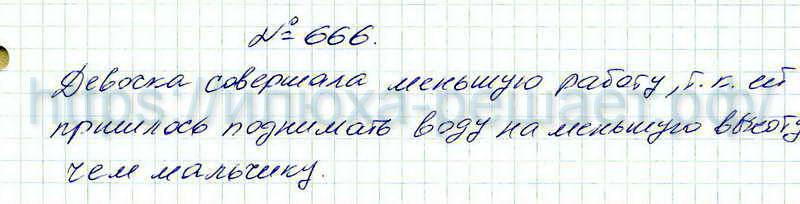 № 666.
Девочка совершала меньшую работу, т.к. ей
пришлось поднимать воду на меньшую высоту
чем мальчику.
https://илюха-решает.рф/